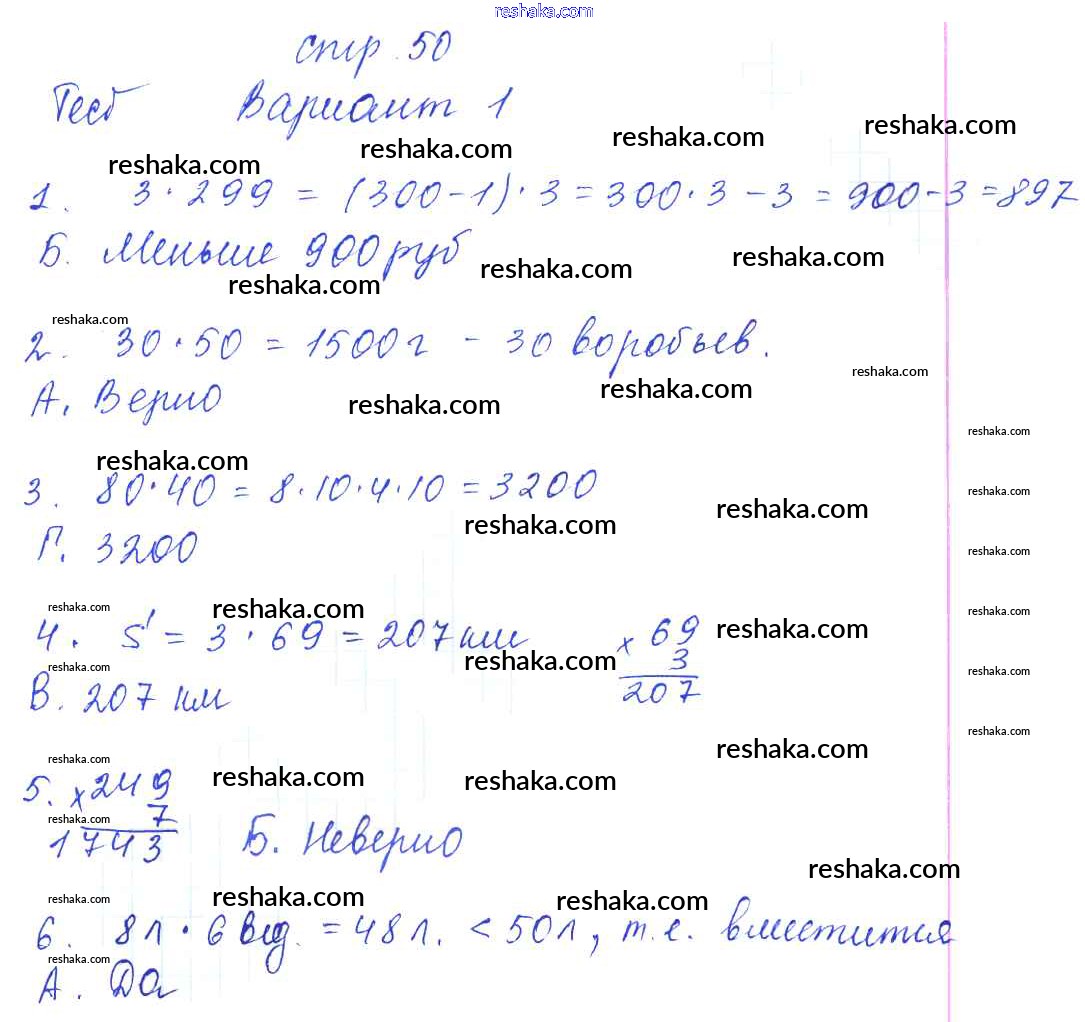 reshaka.com
стр. 50
Тест Вариант 1
reshaka.com reshaka.com reshaka.com reshaka.com
1. 3 · 299 = (300 - 1) · 3 = 300 · 3 - 3 = 900 - 3 = 897
Б. Меньше 900 руб
reshaka.com reshaka.com reshaka.com
reshaka.com
2. 30 · 50 = 1500 г - 30 воробьев.
А. Верно
reshaka.com reshaka.com reshaka.com
reshaka.com
reshaka.com
3. 80 · 40 = 8 · 10 · 4 · 10 = 3200
reshaka.com
reshaka.com reshaka.com
Г. 3200
reshaka.com
reshaka.com reshaka.com reshaka.com
4. S = 3 · 69 = 207 км
× 69
3
207
reshaka.com
reshaka.com reshaka.com reshaka.com
В. 207 км
reshaka.com
reshaka.com reshaka.com
reshaka.com reshaka.com
5. × 249
7
1743
reshaka.com
Б. Неверно
reshaka.com
reshaka.com reshaka.com reshaka.com
6. 8 л · 6 вед. = 48 л. < 50 л, т.е. вместится
reshaka.com
А. Да